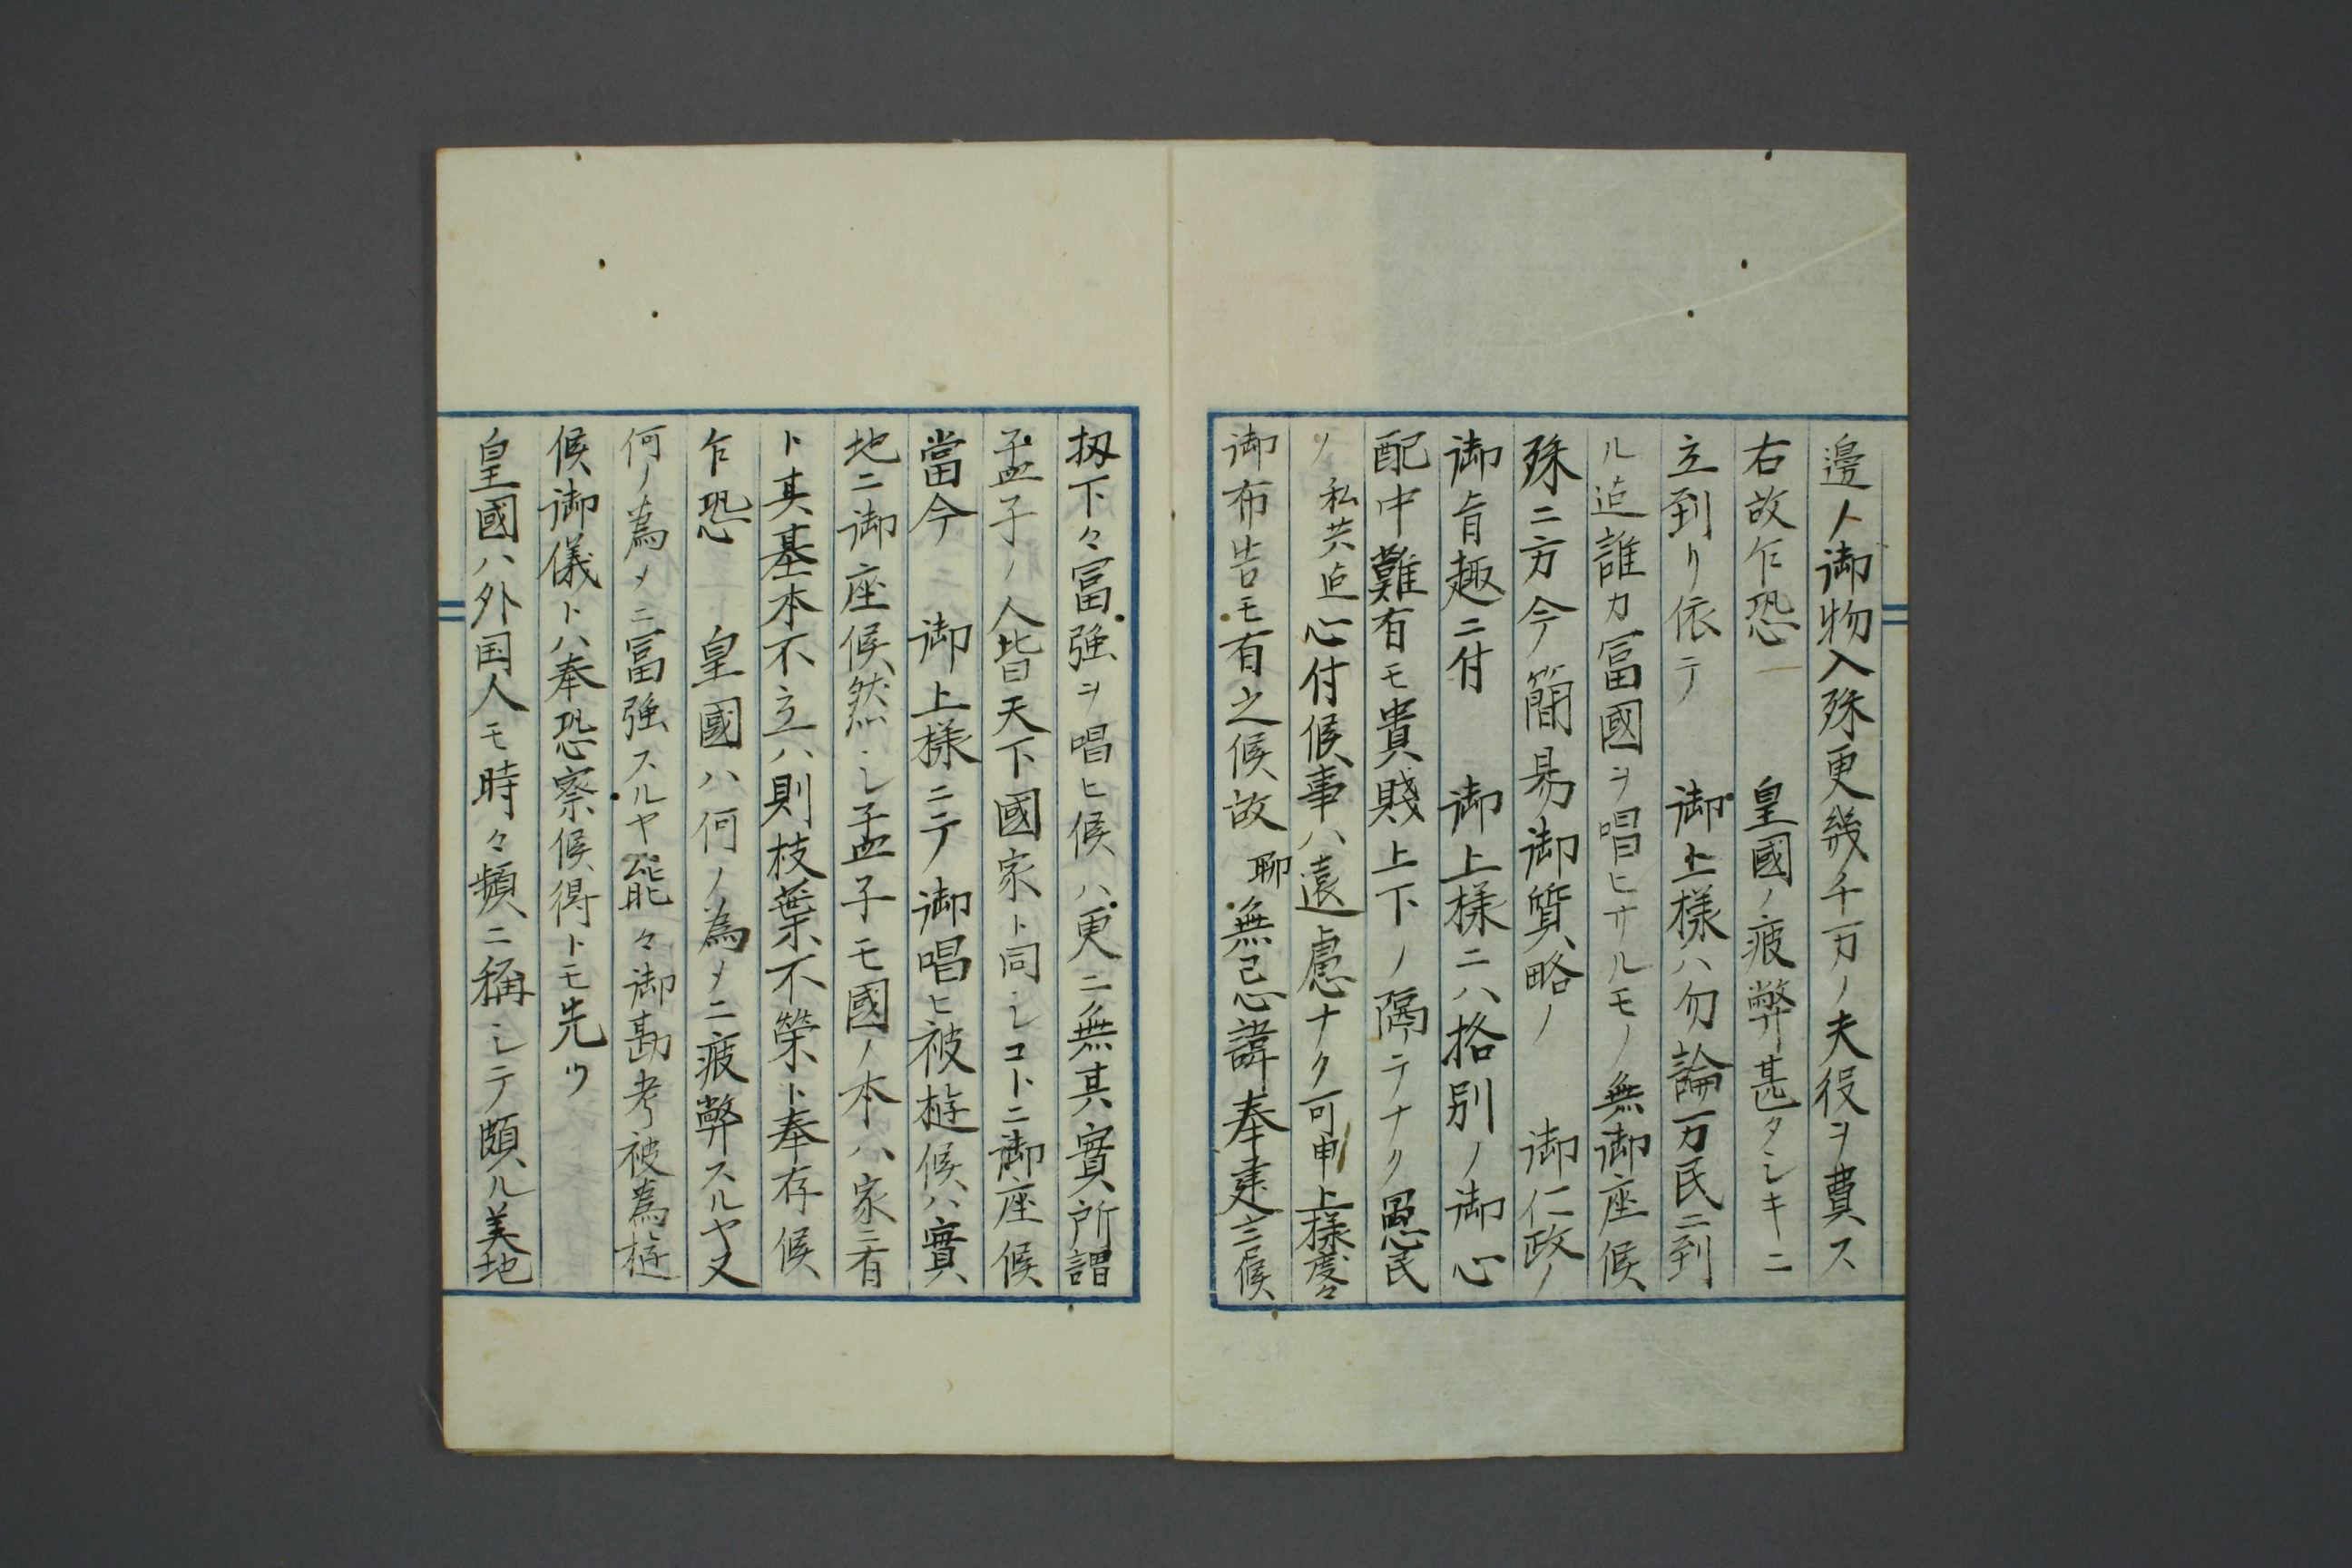 邊ノ御物入殊更幾千万ノ夫役ヲ費ス
右故乍恐　皇國ノ疲弊甚タシキニ
立到リ依テ　御上様ハ勿論万民ニ到
ル迠誰カ冨國ヲ唱ヒサルモノ無御座候
殊ニ方今簡易御質略ノ　御仁政ノ
御旨趣ニ付　御上様ニハ格別ノ御心
配中難有モ貴賤上下ノ隔テナク愚民
ノ私共迠心付候事ハ遠慮ナク可申上様度々
御布告モ有之候故聊無忌諱奉建言候
扨下々冨強ヲ唱ヒ候ハ更ニ無其實所謂
孟子ノ人皆天下國家ト同シコトニ御座候
當今　御上様ニテ御唱ヒ被遊候ハ實
地ニ御座候然シ孟子モ國ノ本ハ家ニ有
ト其基本不立ハ則枝葉不榮ト奉存候
乍恐　皇國ハ何ノ為メニ疲弊スルヤ又
何ノ為メニ冨強スルヤ能々御勘考被為遊
候御儀トハ奉恐察候得トモ先ツ
皇國ハ外国人モ時々頻ニ稱シテ頗ル美地